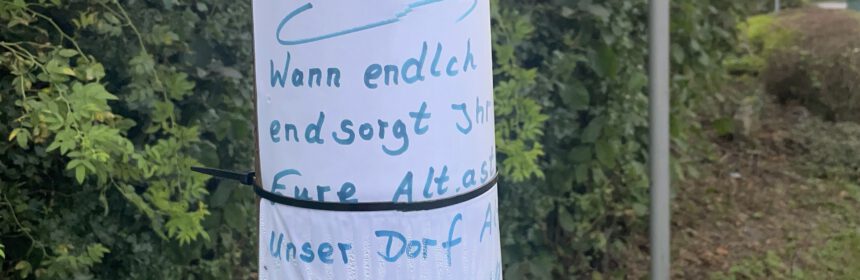 Wann endlch
endsorgt Ihr
Eure Alt.ast
Unser Dorf A